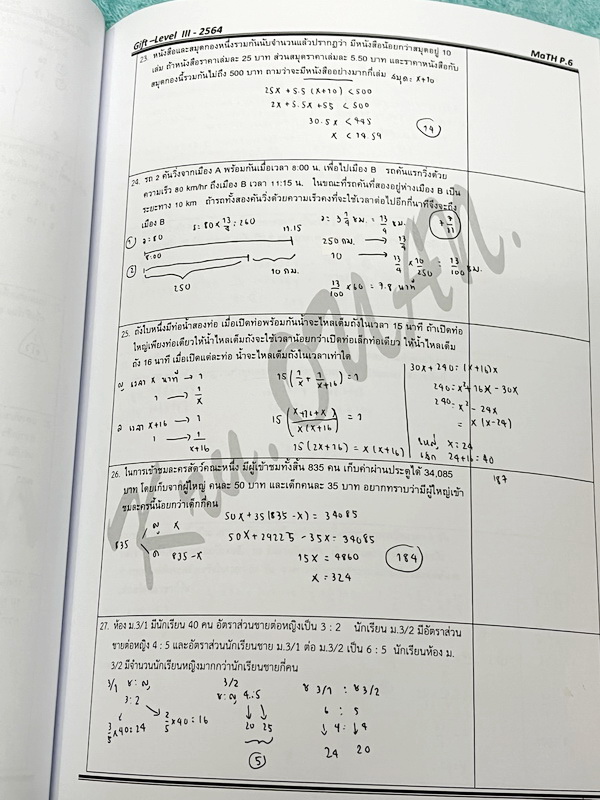 Gift –Level III - 2564
MaTH P.6
23. หนังสือและสมุดกองหนึ่งรวมกันนับจำนวนแล้วปรากฏว่า มีหนังสือน้อยกว่าสมุดอยู่ 10
เล่ม ถ้าหนังสือราคาเล่มละ 25 บาท ส่วนสมุดราคาเล่มละ 5.50 บาท และราคาหนังสือกับ
สมุดกองนี้รวมกันไม่ถึง 500 บาท ถามว่าจะมีหนังสืออย่างมากกี่เล่ม สมุด: x+10
25x + 5.5 (x+10) < 500
2x + 5.5x + 55 < 500
30.5x < 445
x < 14.59
14
24. รถ 2 คันวิ่งจากเมือง A พร้อมกันเมื่อเวลา 8:00 น. เพื่อไปเมือง B รถคันแรกวิ่งด้วย
ความเร็ว 80 km/hr ถึงเมือง B เวลา 11:15 น. ในขณะที่รถคันที่สองอยู่ห่างเมือง B เป็น
ระยะทาง 10 km ถ้ารถทั้งสองคันวิ่งด้วยความเร็วคงที่จะใช้เวลาต่อไปอีกกี่นาทีจึงจะถึง
เมือง B
s = 80 × 13/4 = 260
1 v = 80
11.15
8:00
2
250
10 กม.
= 3 1/4 ชม. = 13/4 ชม.
250 กม. → 13/4
10 → 13/4 × 10/250 = 13/100 ชม.
13/100 × 60 = 7.8 นาที
25. ถังใบหนึ่งมีท่อน้ำสองท่อ เมื่อเปิดท่อพร้อมกันน้ำจะไหลเต็มถังในเวลา 15 นาที ถ้าเปิดท่อ
ใหญ่เพียงท่อเดียวให้น้ำไหลเต็มถังจะใช้เวลาน้อยกว่าเปิดท่อเล็กท่อเดียว ให้น้ำไหลเต็ม
ถัง 16 นาที เมื่อเปิดแต่ละท่อ น้ำจะไหลเต็มถังในเวลาเท่าใด
ญ เวลา x นาที → 1
1 → 1/x
ล เวลา x+16 → 1
1 → 1/x+16
15 (1/x + 1/x+16) = 1
15 (x+16+x / x(x+16)) = 1
15 (2x+16) = x (x+16)
30x + 240 = (x+16)x
240 = x² + 16x - 30x
240 = x² - 24x
= x (x-24)
ใหญ่ x = 24
เล็ก 24+16 = 40
26. ในการเข้าชมละครสัตว์คณะหนึ่ง มีผู้เข้าชมทั้งสิ้น 835 คน เก็บค่าผ่านประตูได้ 34,085
บาท โดยเก็บจากผู้ใหญ่ คนละ 50 บาท และเด็กคนละ 35 บาท อยากทราบว่ามีผู้ใหญ่เข้า
ชมละครนี้น้อยกว่าเด็กกี่คน
187
835
ญ x
ด 835-x
50x + 35 (835 - x) = 34085
50x + 29225 - 35x = 34085
15x = 4860
x = 324
184
27. ห้อง ม.3/1 มีนักเรียน 40 คน อัตราส่วนชายต่อหญิงเป็น 3 : 2 นักเรียน ม.3/2 มีอัตราส่วน
ชายต่อหญิง 4 : 5 และอัตราส่วนนักเรียนชาย ม.3/1 ต่อ ม.3/2 เป็น 6 : 5 นักเรียนห้อง ม.
3/2 มีจำนวนนักเรียนหญิงมากกว่านักเรียนชายกี่คน
3/1 ช : ญ
3 : 2
3/5 × 40 = 24
2/5 × 40 = 16
3/2
ช : ญ 4 : 5
20 25
5
ช 3/1 : ช 3/2
6 : 5
↓ 4 : ↓ 4
24 20
Kru.OUAN.